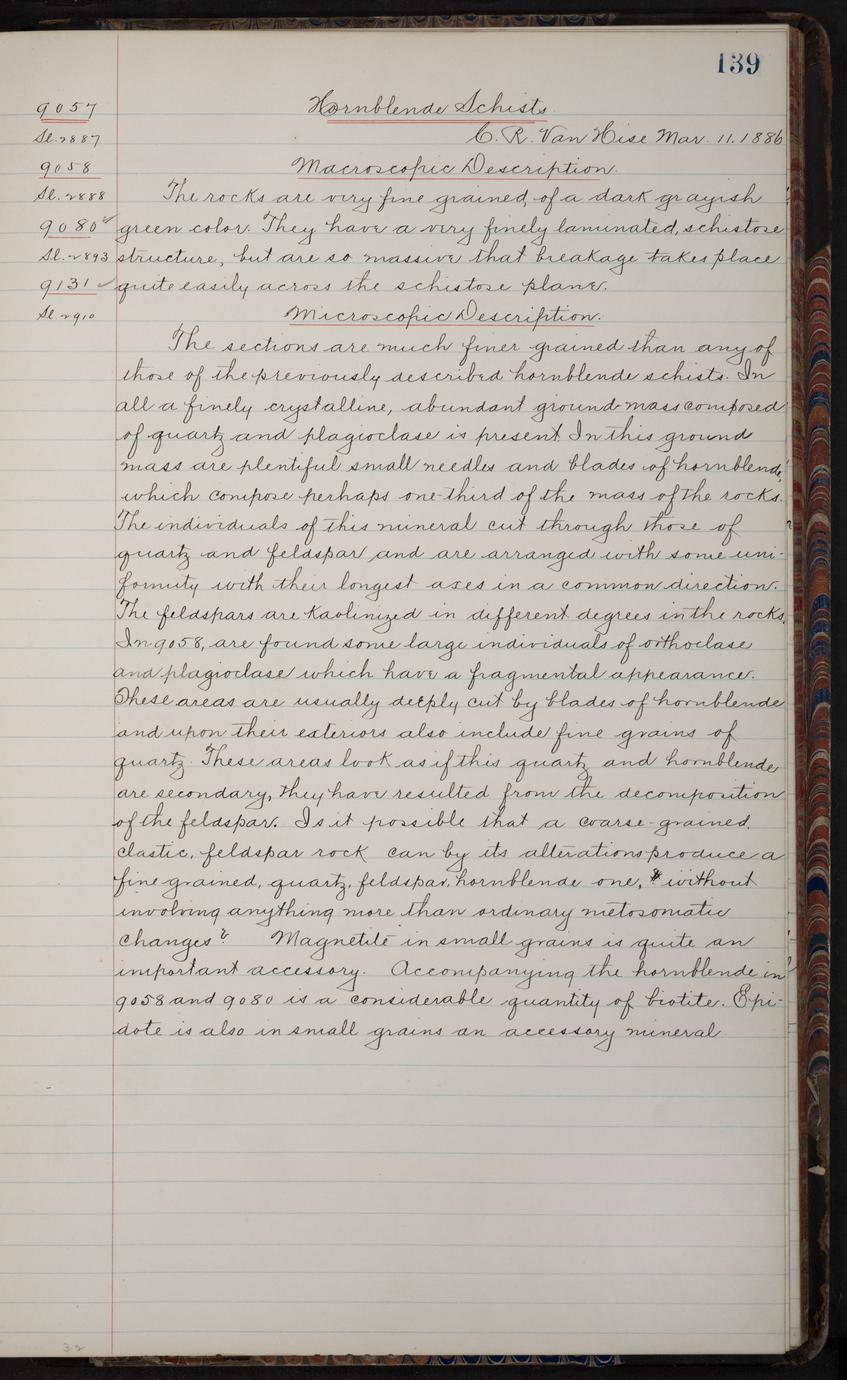 139
9057 Hornblende Schists.
Sl. 2887 C. R. Van Hise Mar. 11. 1886
9058 Macroscopic Description.
Sl. 2888 The rocks are very fine grained, of a dark grayish
9080 green color. They have a very finely laminated, schistose
Sl. 2893 structure, but are so massive that breakage takes place
9131 quite easily across the schistose plane.
Sl. 2910 Microscopic Description.
The sections are much finer grained than any of
those of the previously described hornblende schists. In
all a finely crystalline, abundant ground-mass composed
of quartz and plagioclase is present. In this ground
mass are plentiful small needles and blades of hornblende,
which compose perhaps one-third of the mass of the rocks.
The individuals of this mineral cut through those of
quartz and feldspar and are arranged with some uni-
formity with their longest axes in a common direction.
The feldspars are kaolinized in different degrees in the rocks.
In 9058, are found some large individuals of orthoclase
and plagioclase which have a fragmental appearance.
These areas are usually deeply cut by blades of hornblende
and upon their exteriors also include fine grains of
quartz. These areas look as if this quartz and hornblende
are secondary, they have resulted from the decomposition
of the feldspar. Is it possible that a coarse-grained,
clastic, feldspar rock can by its alterations produce a
fine grained, quartz, feldspar, hornblende one, without
involving anything more than ordinary metosomatic
changes? Magnetite in small grains is quite an
important accessory. Accompanying the hornblende in
9058 and 9080 is a considerable quantity of biotite. Epi-
dote is also in small grains an accessory mineral
32